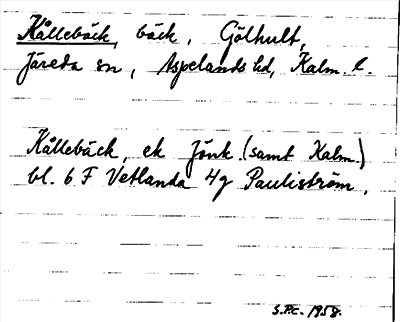 Kållebäck, bäck, Gölhult,
Järeda sn, Aspelands hd, Kalm. l.
Kållebäck, ek Jönk. (samt Kalm.)
bl. 6 F Vetlanda 4g Pauliström.
S.P.C. 1958.